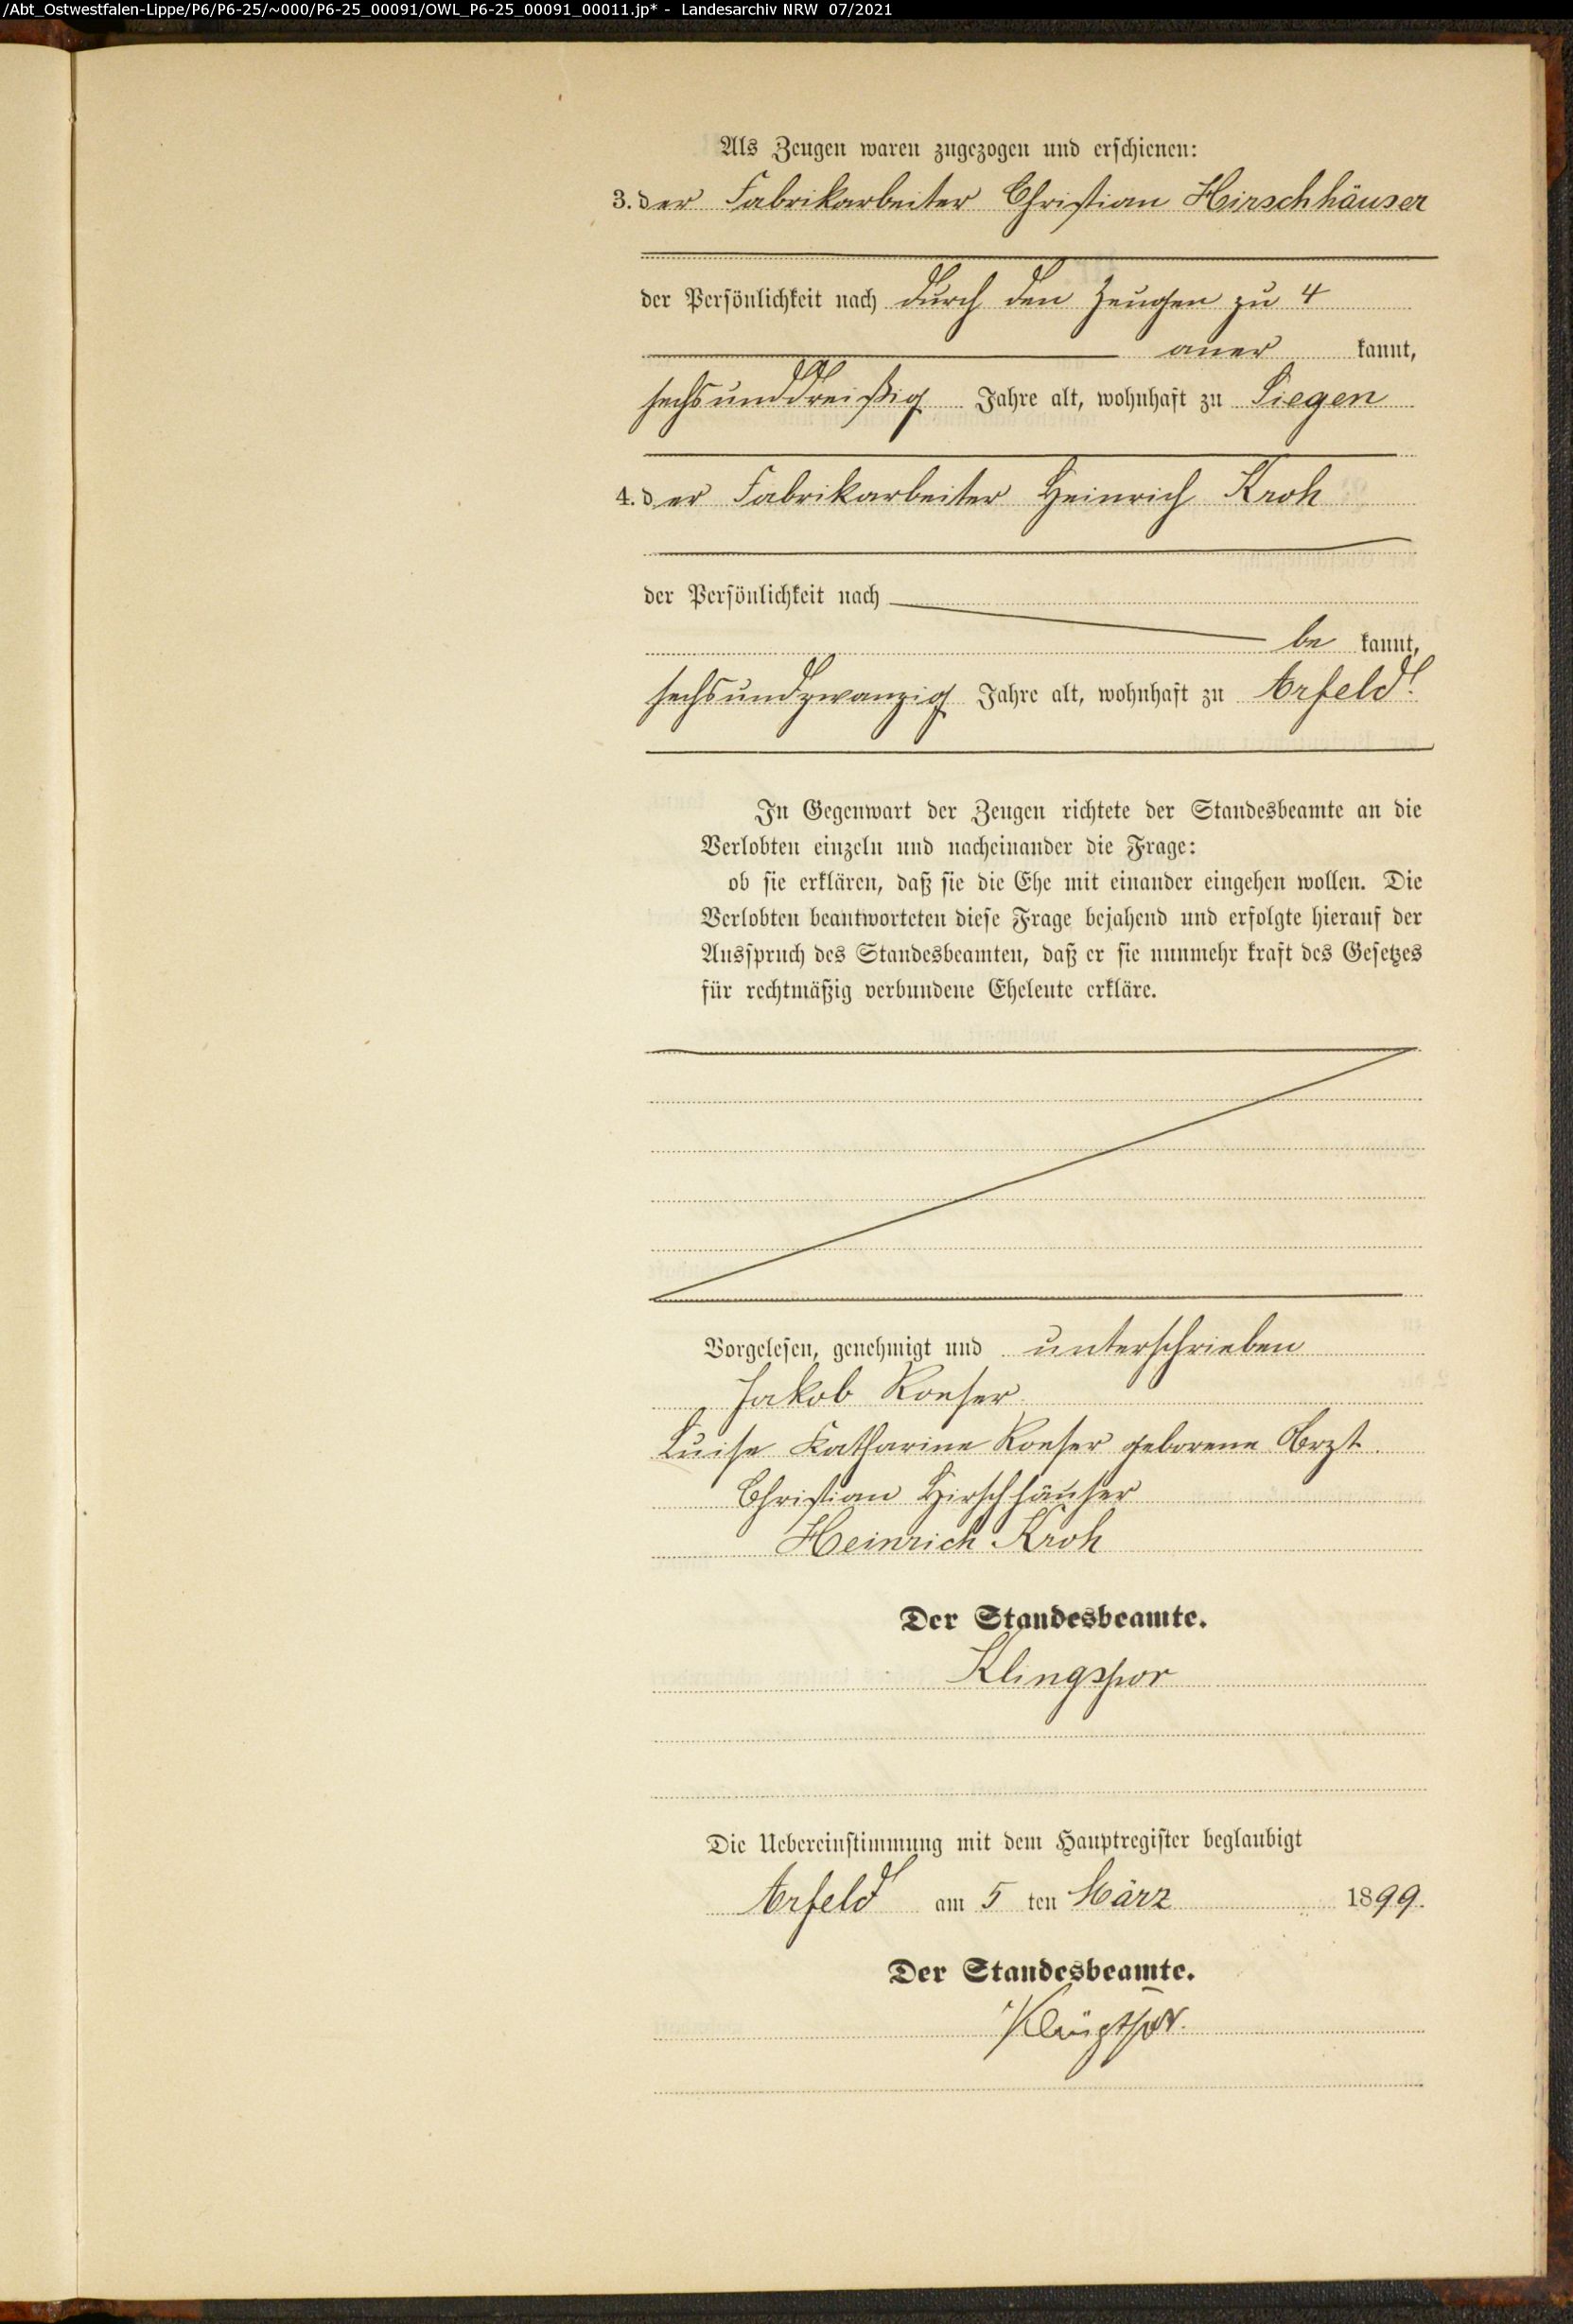 /Abt_Ostwestfalen-Lippe/P6/P6-25/~000/P6-25_00091/OWL_P6-25_00091_00011.jp* - Landesarchiv NRW 07/2021
Als Zeugen waren zugezogen und erschienen:
3. der Fabrikarbeiter Christian Hirschhäuser
der Persönlichkeit nach durch den Zeugen zu 4
aner kannt,
sechsunddreißig Jahre alt, wohnhaft zu Siegen
4. der Fabrikarbeiter Heinrich Kroh
der Persönlichkeit nach
be kannt,
sechsundzwanzig Jahre alt, wohnhaft zu Arfeld.
In Gegenwart der Zeugen richtete der Standesbeamte an die
Verlobten einzeln und nacheinander die Frage:
ob sie erklären, daß sie die Ehe mit einander eingehen wollen. Die
Verlobten beantworteten diese Frage bejahend und erfolgte hierauf der
Ausspruch des Standesbeamten, daß er sie nunmehr kraft des Gesetzes
für rechtmäßig verbundene Eheleute erkläre.
Vorgelesen, genehmigt und unterschrieben
Jakob Roeser
Luise Katharine Roeser geborene Arzt.
Christian Hirschhäuser
Heinrich Kroh
Der Standesbeamte.
Klingspor
Die Uebereinstimmung mit dem Hauptregister beglaubigt
Arfeld am 5 ten März 1899.
Der Standesbeamte.
Klingspor.